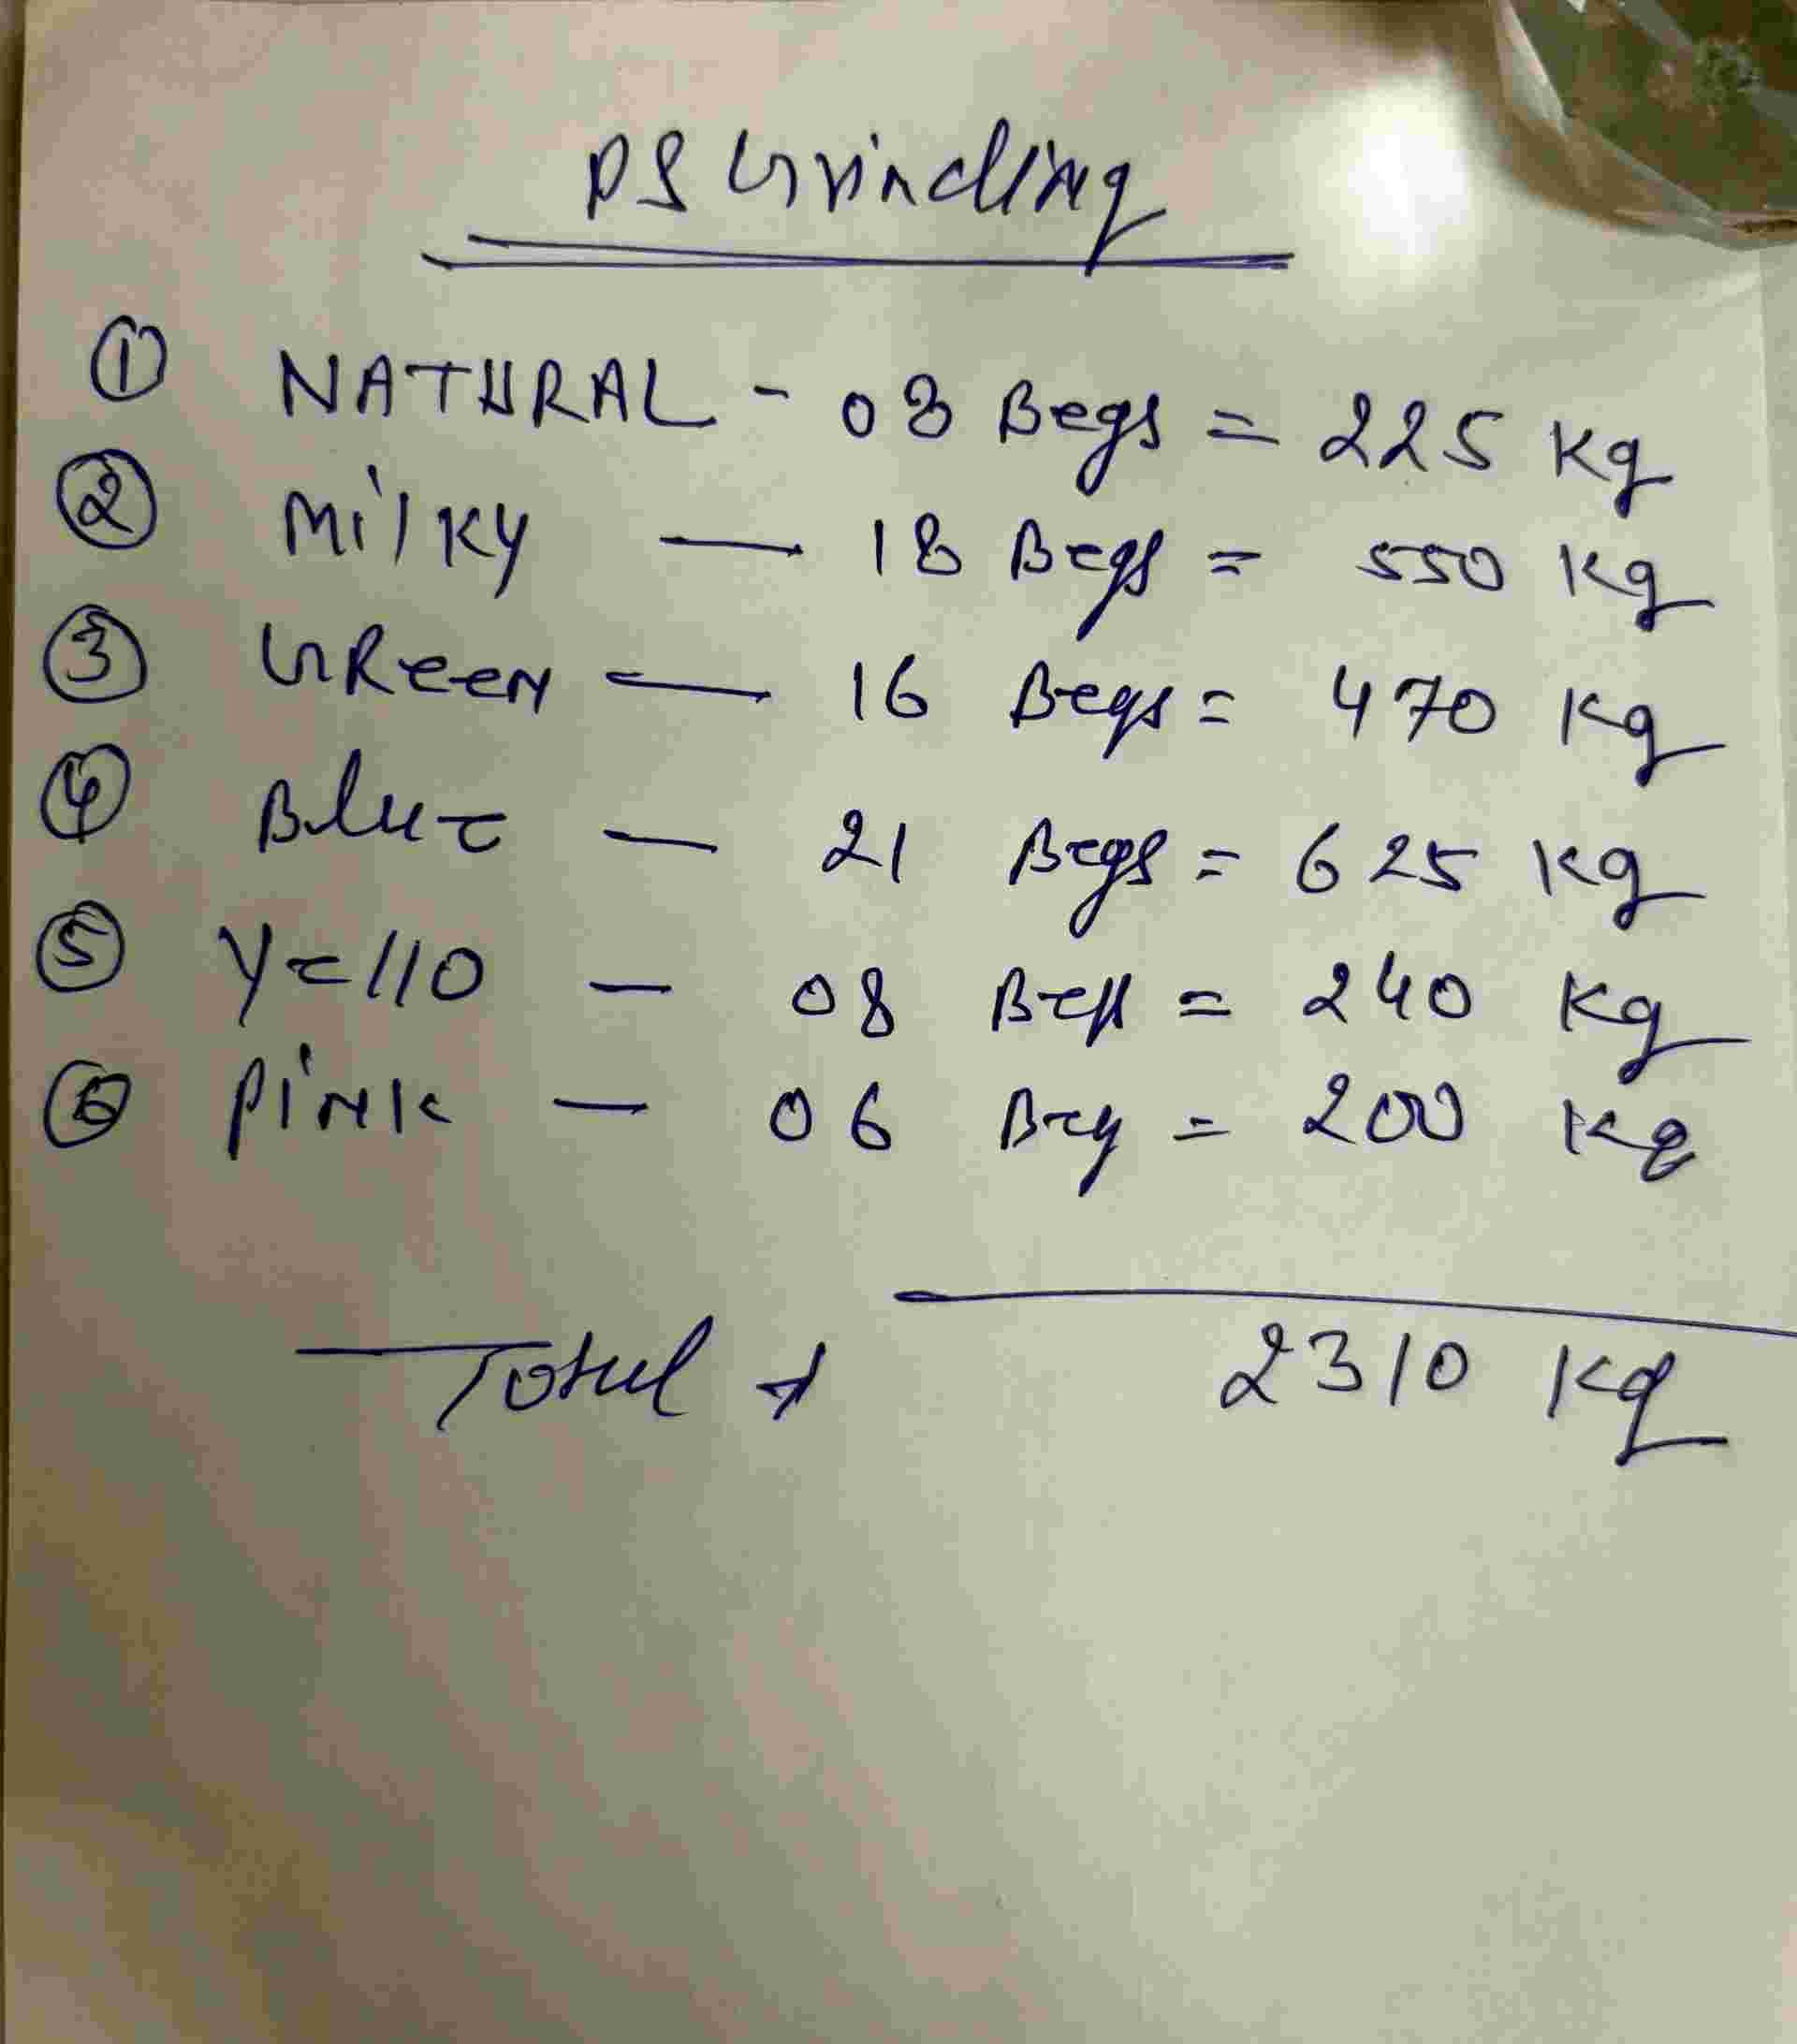 PS Grinding
① NATURAL - 08 Begs = 225 kg
② Milky — 18 Begs = 550 kg
③ GReen — 16 Begs = 470 kg
④ Blue — 21 Begs = 625 kg
⑤ Yello — 08 Begs = 240 kg
⑥ Pink — 06 Beg = 200 kg
Total → 2310 kg